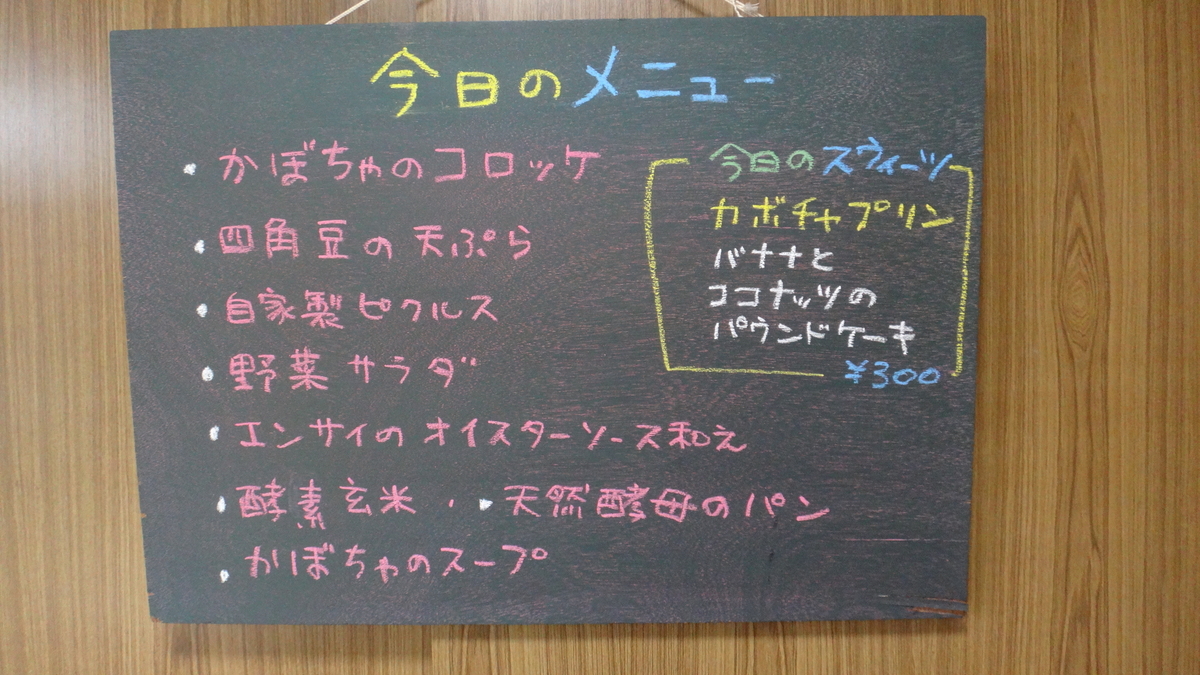 今日のメニュー
・かぼちゃのコロッケ
・四角豆の天ぷら
・自家製ピクルス
・野菜サラダ
・エンサイのオイスターソース和え
・酵素玄米・・天然酵母のパン
・かぼちゃのスープ
今日のスウィーツ
カボチャプリン
バナナと
ココナッツの
パウンドケーキ
¥300